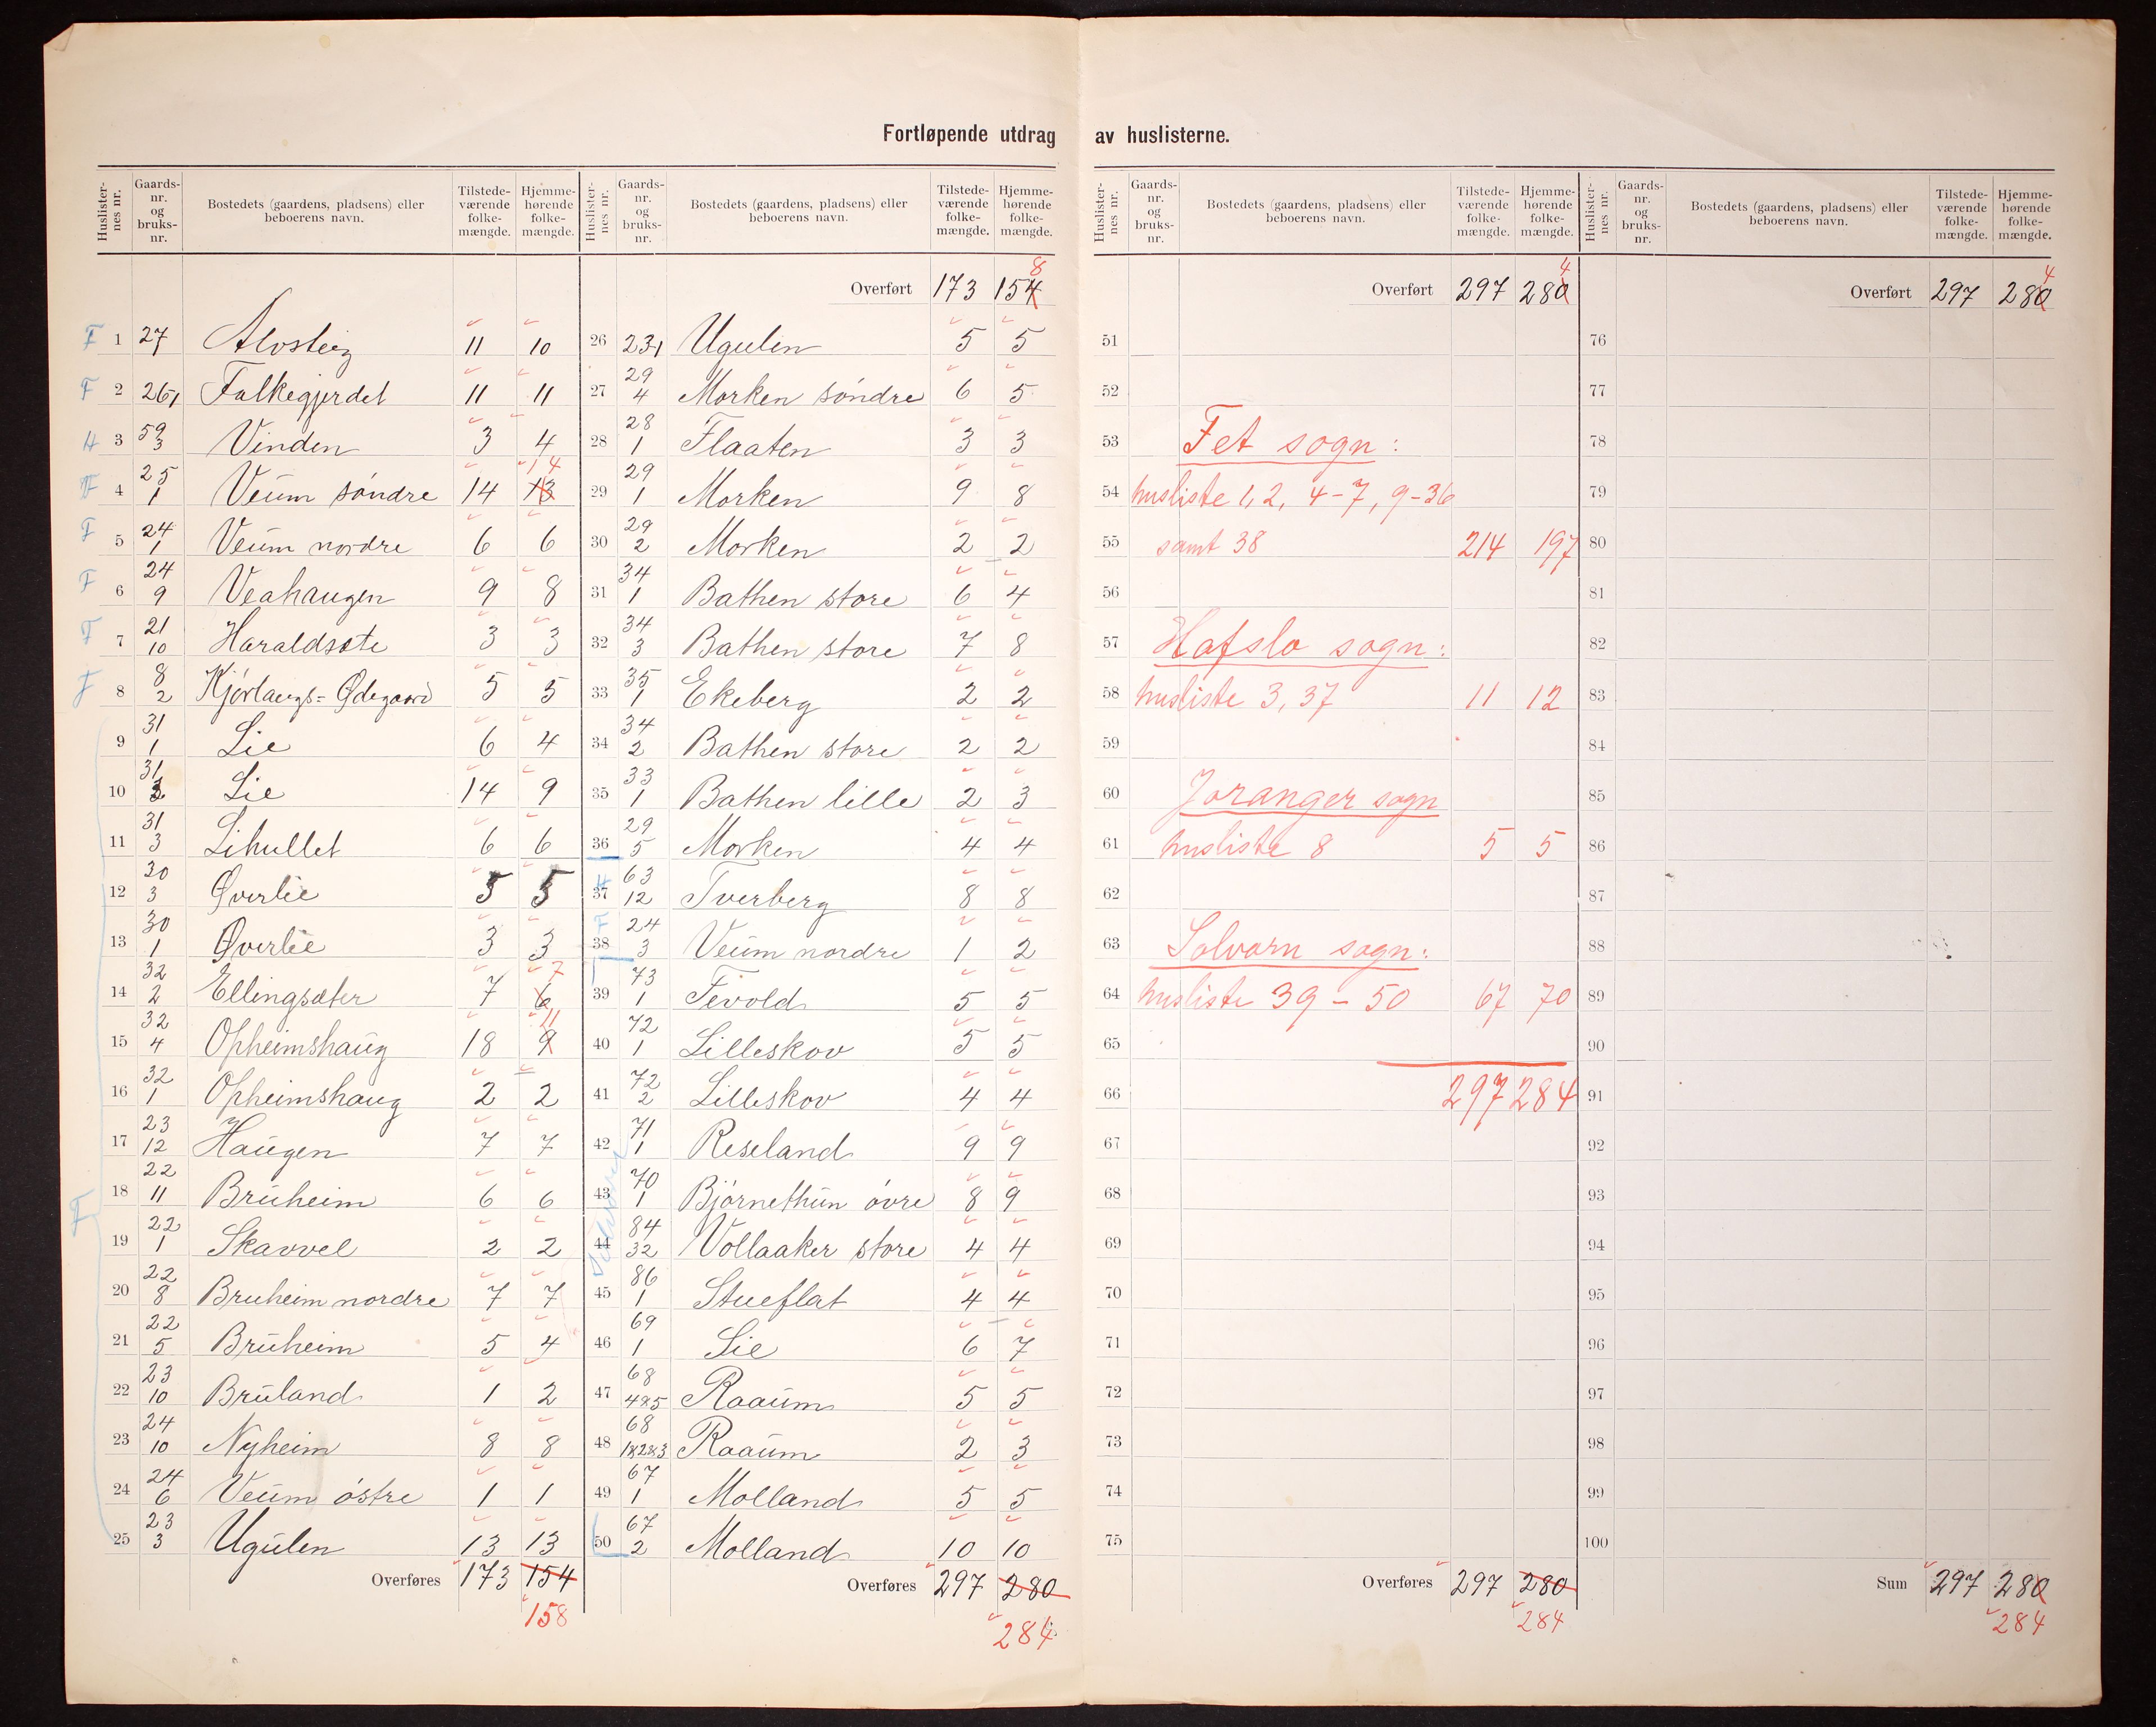 Fortløpende utdrag av huslisterne.
Huslister-nes nr. Gaards-nr. og bruks-nr. Bostedets (gaardens, pladsens) eller beboerens navn. Tilstede-værende folke-mængde. Hjemme-hørende folke-mængde.
F 1 27 1 11 10
F 2 26,1 Falkegjerdet 11 11
H 3 59 3 Vinden 3 4
F 4 25 1 Veum söndre 14 13 14
F 5 24 1 Veum nordre 6 6
F 6 24 9 Veahaugen 9 8
F 7 21 10 Haraldsæte 3 3
J 8 8 2 Kjørlaugs=Ødegaard 5 5
9 31 1 Lie 6 4
10 31 2 Lie 14 9
11 31 3 Lihullet 6 6
12 30 3 Øverlie 5 5
13 30 1 Øverlie 3 3
14 32 2 Ellingsæter 7 6 7
15 32 4 Opheimshaug 18 9 11
16 32 1 Opheimshaug 2 2
17 23 12 Haugen 7 7
F 18 22 11 Bruheim 6 6
19 22 1 Skavvel 2 2
20 22 8 Bruheim nordre 7 7
21 22 5 Bruheim 5 4
22 23 10 Bruland 1 2
23 24 10 Nyheim 8 8
24 24 6 Veum östre 1 1
25 23 3 Ugulen 13 13
Overføres 173 154
158
Huslister-nes nr. Gaards-nr. og bruks-nr. Bostedets (gaardens, pladsens) eller beboerens navn. Tilstede-værende folke-mængde. Hjemme-hørende folke-mængde.
Overført 173 154 8
26 23,1 Ugulen 5 5
27 29 4 Morken söndre 6 5
28 28 1 Flaaten 3 3
29 29 1 Morken 9 8
30 29 2 Morken 2 2
31 34 1 Bathen store 6 4
32 34 3 Bathen store 7 8
33 35 1 Ekeberg 2 2
34 34 2 Bathen store 2 2
35 33 1 Bathen lille 2 3
36 29 5 Morken 4 4
H 37 63 12 Tverberg 8 8
F 38 24 3 Veum nordre 1 2
39 73 1 Tevold 5 5
40 72 1 Lilleskov 5 5
41 72 2 Lilleskov 4 4
42 71 1 Reseland 9 9
43 70 1 Björnethun övre 8 9
44 84 32 Vollaaker store 4 4
45 86 1 Stueflat 4 4
46 69 1 Lie 6 7
47 68 4&5 Raaum 5 5
48 68 1&2&3 Raaum 2 3
49 67 1 Molland 5 5
50 67 2 Molland 10 10
Overføres 297 280
284
Huslister-nes nr. Gaards-nr. og bruks-nr. Bostedets (gaardens, pladsens) eller beboerens navn. Tilstede-værende folke-mængde. Hjemme-hørende folke-mængde.
Overført 297 280 4
51
52
53 Fet sogn:
54 husliste 1, 2, 4-7, 9-36
55 samt 38 214 197
56
57 Hafslo sogn:
58 husliste 3, 37 11 12
59
60 Joranger sogn
61 husliste 8 5 5
62
63 Solvorn sogn:
64 husliste 39 - 50 67 70
65
66 297 284
67
68
69
70
71
72
73
74
75
Overføres 297 280
284
Huslister-nes nr. Gaards-nr. og bruks-nr. Bostedets (gaardens, pladsens) eller beboerens navn. Tilstede-værende folke-mængde. Hjemme-hørende folke-mængde.
Overført 297 280 4
76
77
78
79
80
81
82
83
84
85
86
87
88
89
90
91
92
93
94
95
96
97
98
99
100
Sum 297 280
284